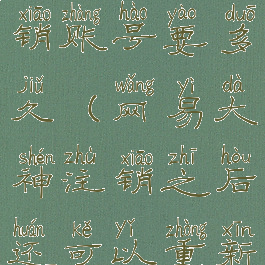 xiāo zhàng hào yào duō
销账号要多
jiǔ ( wǎng yì dà
久(网易大
shén zhù xiāo zhī hòu
神注销之后
huán kě yǐ zhòng xīn
还可以重新